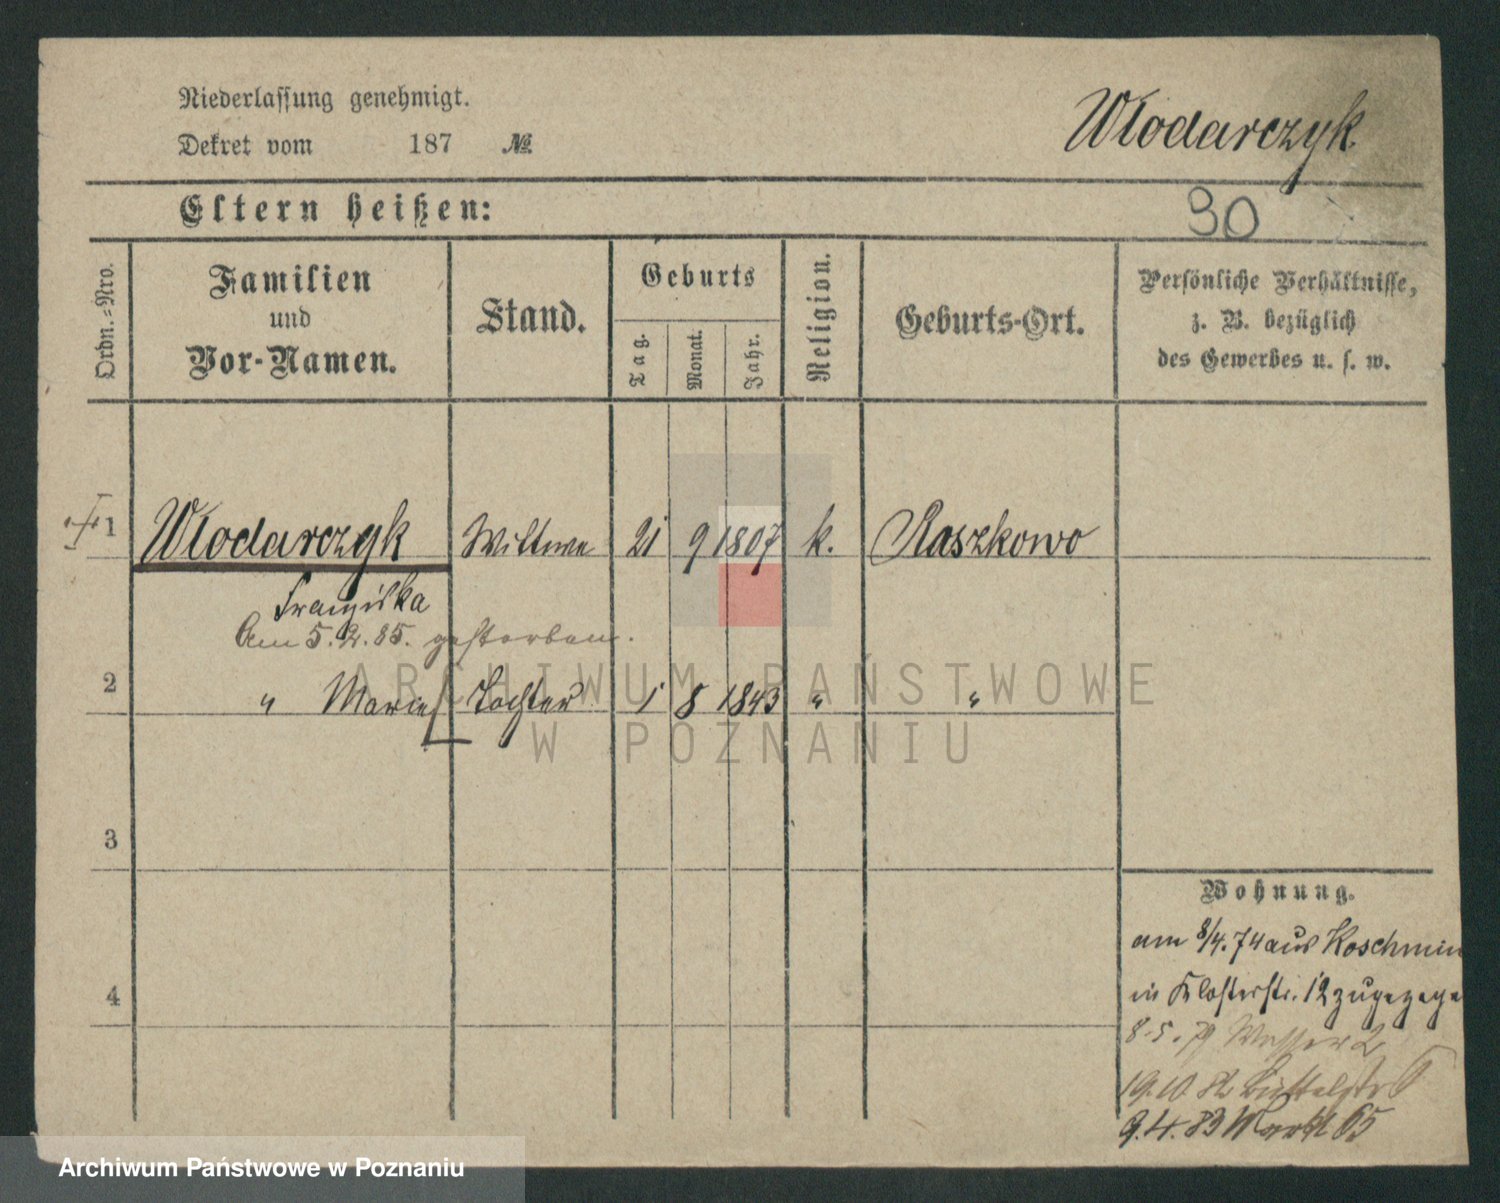 Niederlassung genehmigt.
Dekret vom 187 №
Włodarczyk
Eltern heißen:
30
Ordn.=Nro.
Familien
und
Vor-Namen.
Stand.
Geburts
Tag.
Monat.
Jahr.
Religion.
Geburts-Ort.
Persönliche Verhältnisse,
z. B. bezüglich
des Gewerbes u. s. w.
1 Włodarczyk Wittwe 21 9 1807 k. Raszkowo
Franziska
Am 5. 2. 85. gestorben.
2 " Marie Tochter 1 8 1843 " "
3
4
Wohnung.
am 8/4. 74 aus Koschmin
in Klosterstr. 12 zugezoge
8.5.79 Wasser 2
19.10.82 Büttelstr 6
9.4.83 Markt 65
ARCHIWUM PAŃSTWOWE
W POZNANIU
Archiwum Państwowe w Poznaniu